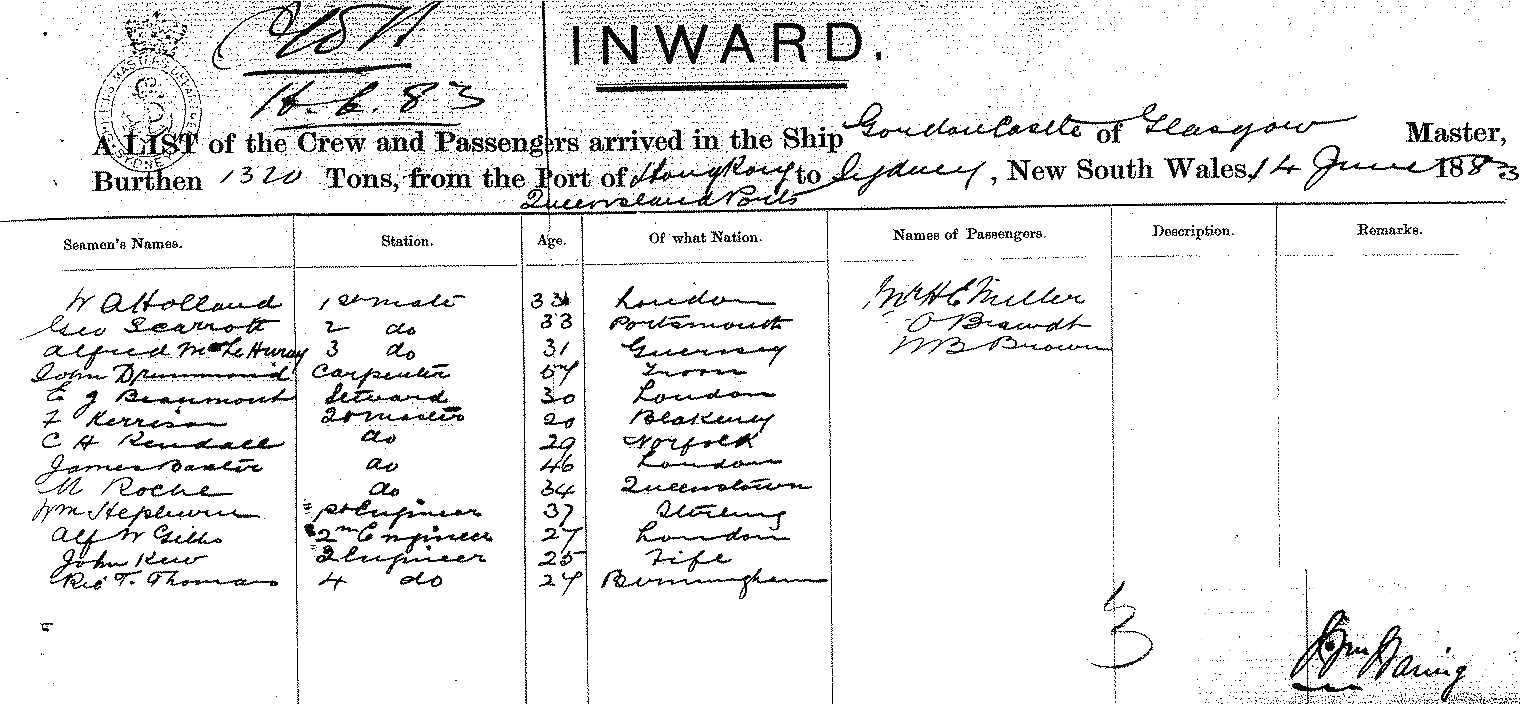 INWARD.
16.6.83
A LIST of the Crew and Passengers arrived in the Ship Gordon Castle of Glasgow Master,
Burthen 1320 Tons, from the Port of Hong Kong to Sydney, New South Wales, 14 June 1883
Queensland Ports
Seamen's Names. Station. Age. Of what Nation. Names of Passengers. Description. Remarks.
W A Holland 1st mate 33 London Mr H E Miller
Geo Scarrott 2 do 33 Portsmouth O Brandt
Alfred Le Huray 3 do 31 Guernsey W B Brown
John Drummond Carpenter 57 Troon
E J Beaumont Steward 30 London
F Kerrison 2r masters 20 Blakeney
C H Kendall do 29 Norfolk
James Baxter do 46 London
M Roche do 34 Queenstown
Wm Hepburn 1st Engineer 37 Stirling
Alf W Gibbs 2nd Engineer 27 London
John Kew 3 Engineer 25 Fife
Ric T. Thomas 4 do 27 Birmingham
3
Waring